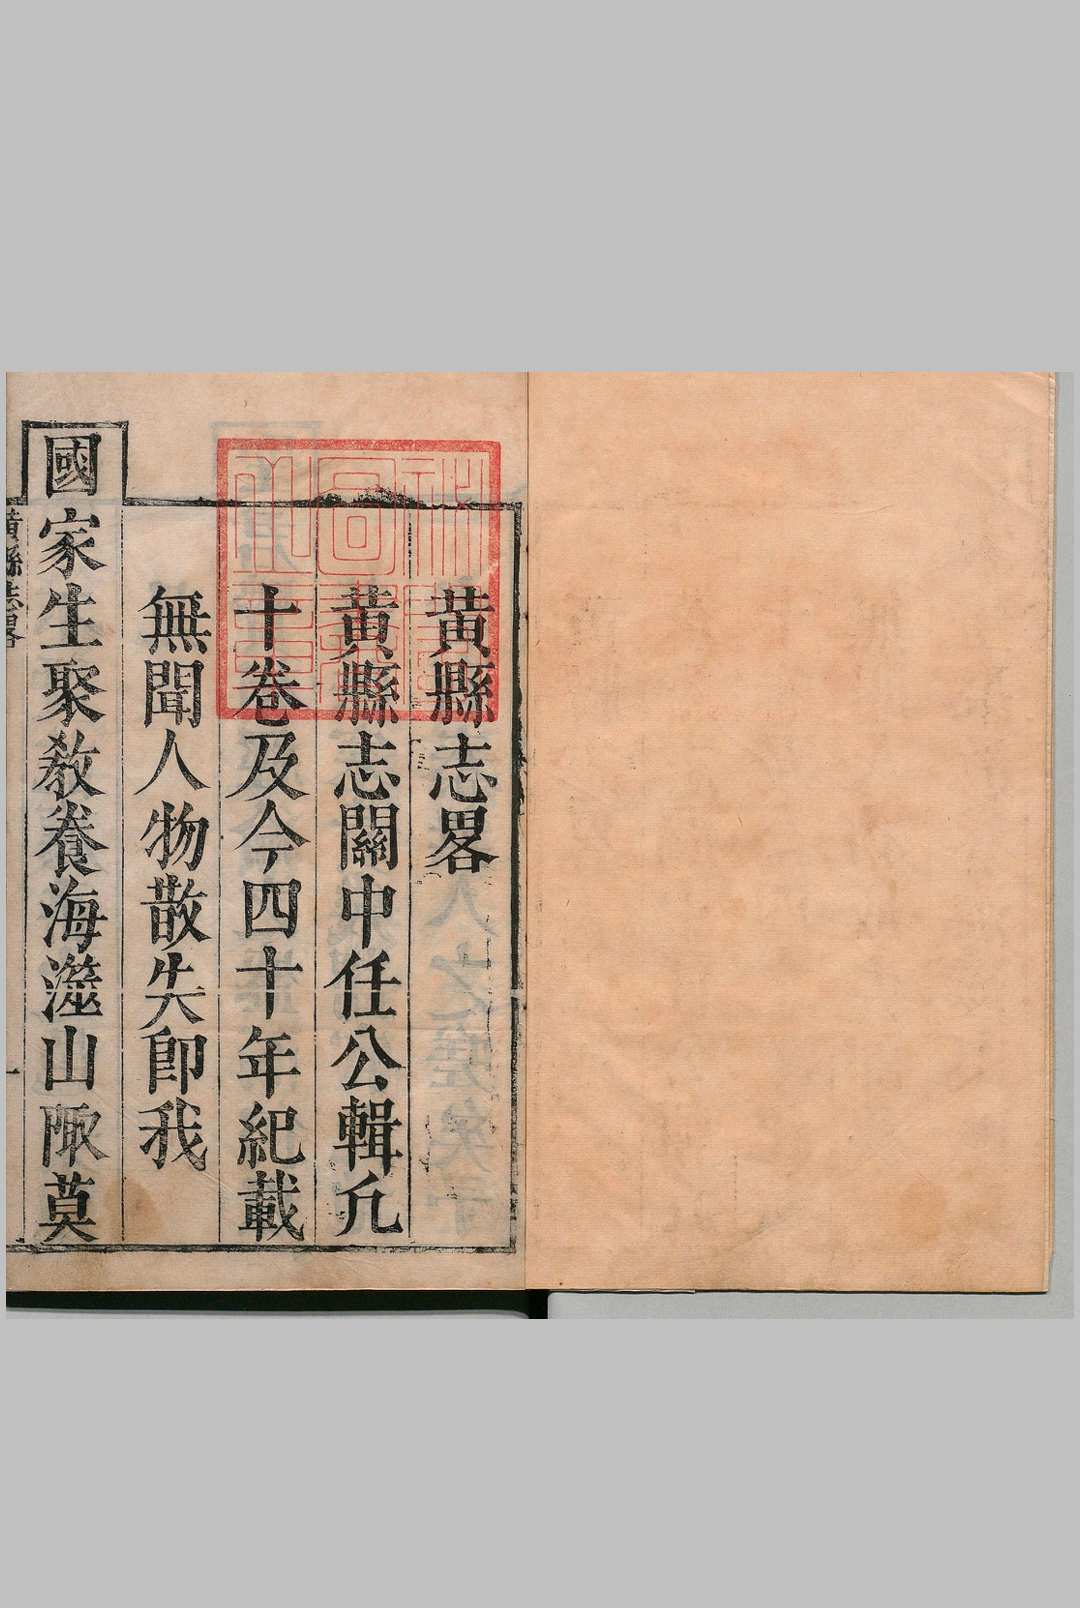 黃縣志畧
黃縣志關中任公輯凢
十卷及今四十年紀載
無聞人物散失卽我
國家生聚敎養海澨山陬莫
黃縣志畧
一